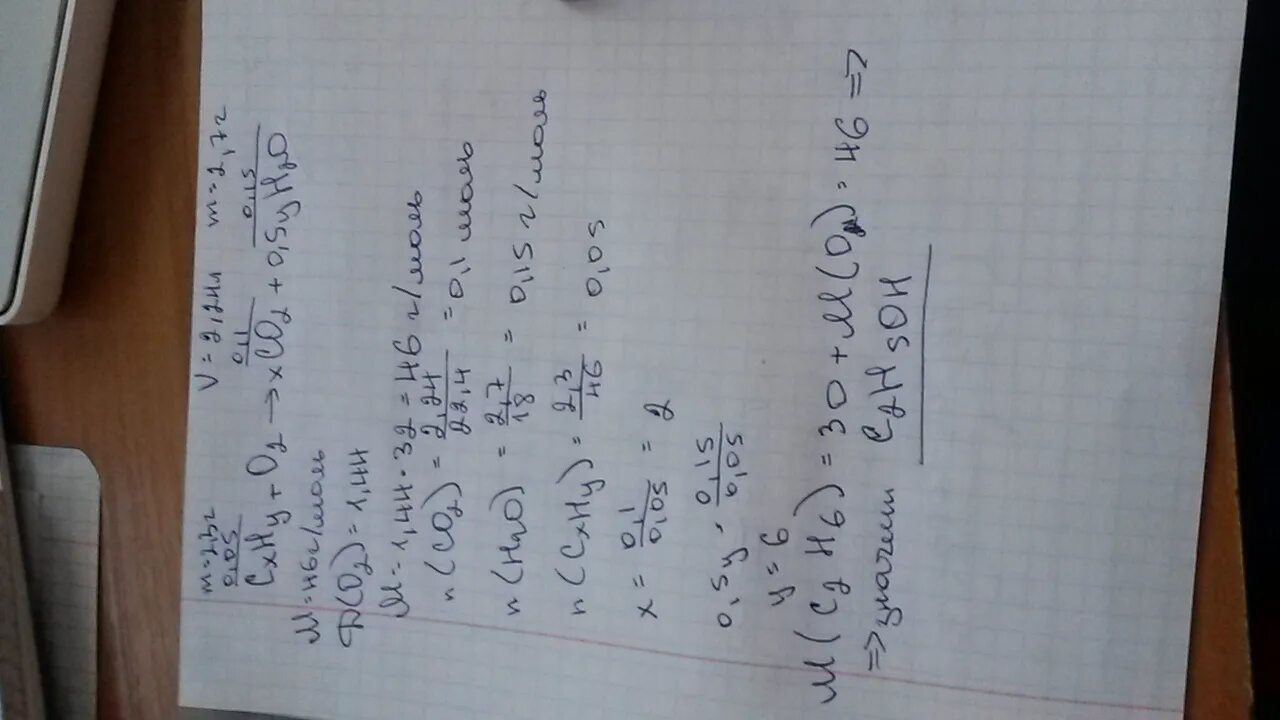 m=2,3г V=2,24л m=2,7г
0,05 0,1 0,15
CxHy + O2 → xCO2 + 0,5yH2O
M=46г/моль
D(O2)=1,44
M=1,44·32=46 г/моль
n(CO2)=2,24/22,4=0,1 моль
n(H2O)=2,7/18=0,15 г/моль
n(CxHy)=2,3/46=0,05
x=0,1/0,05=2
0,5y=0,15/0,05
y=6
M(C2H6)=30+M(O2)=46 =>
=> значит C2H5OH